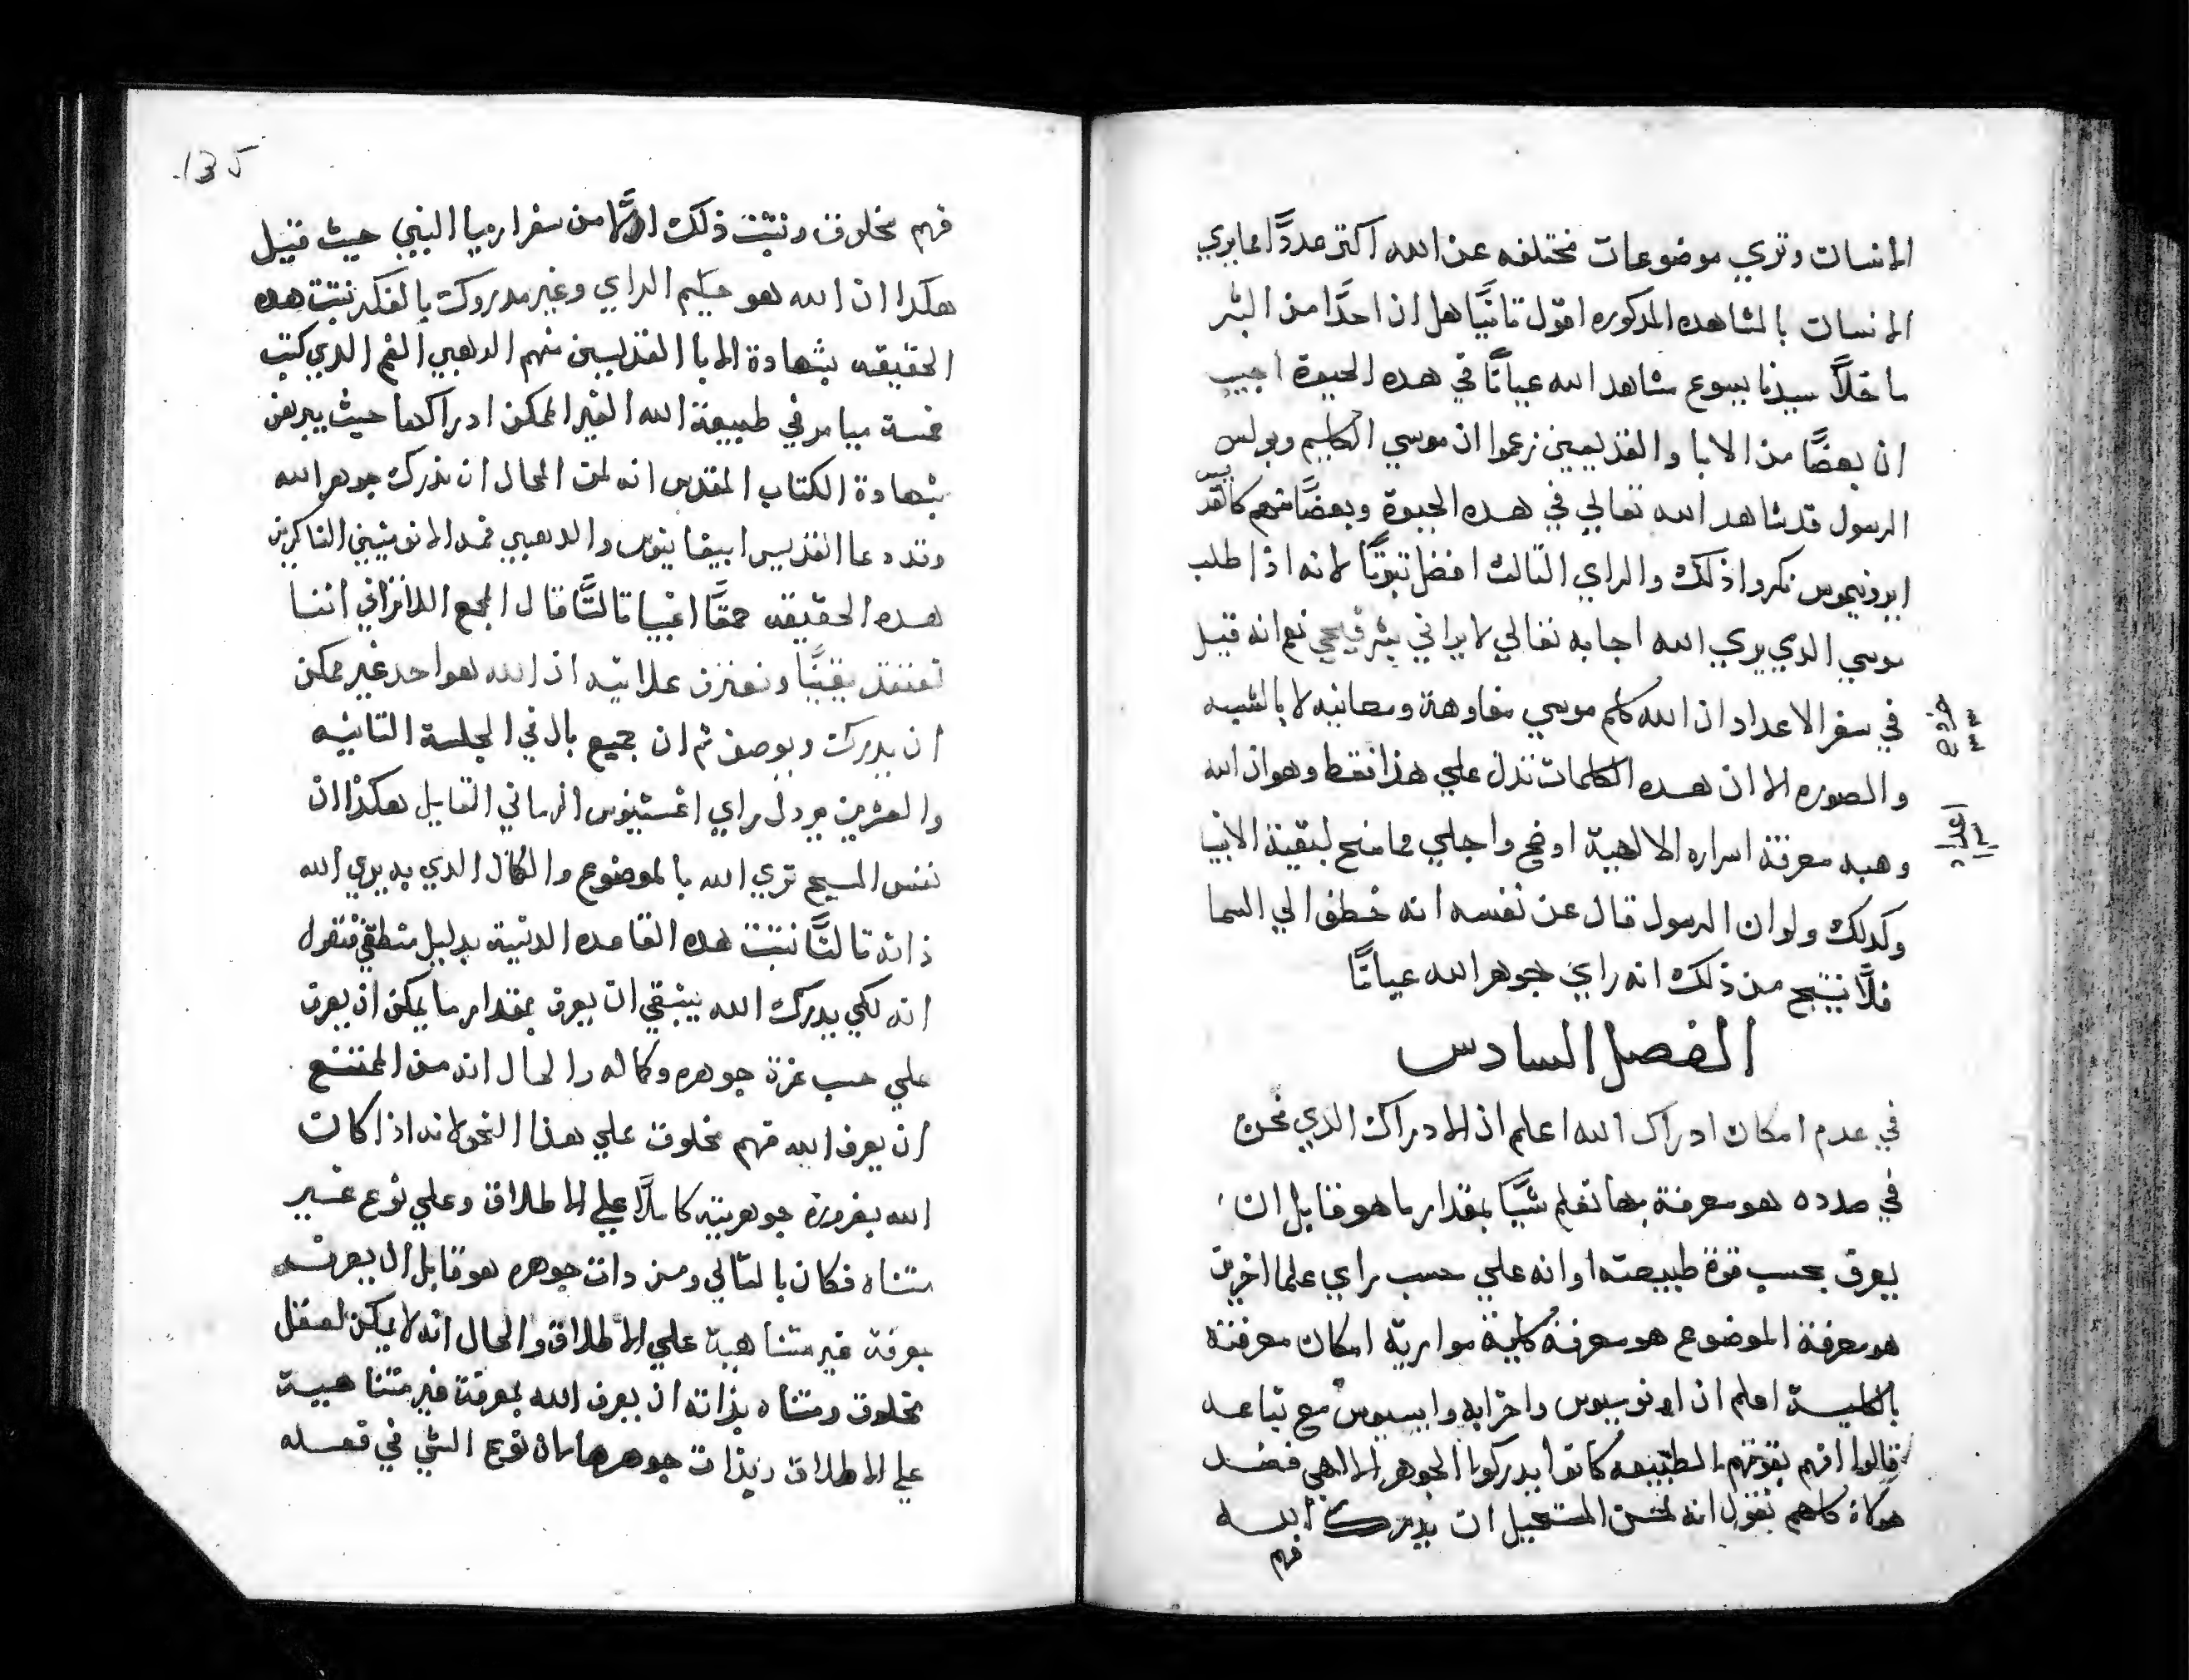 الانسان وتري موضوعات مختلفه عن الله اكتر عددًا مما يري
الانسان بالمشاهده المدكوره اقول تانيًا هل ان احدًا من البشر
ما خلاً سيدنا يسوع شاهد الله عيانًا في هده الحيوة اجيب
ان بعضًا من الابا والقديسين زعموا ان موسي الكليم وبولس
الرسول قد شاهد الله تعالي في هده الحيوة وبعضًا منهم كالقديس
ايرونيموس نكروا ذلك والراي التالت افضل تبوتًا لانه اذا طلب
موسي الدي يري الله اجابه تعالي لا يراني بشر فيحيي نعم انه قيل
في سفر الاعداد ان الله كلم موسي مفاوهة ومعانيه لا بالشبه
والصوره الا ان هده الكلمات تدل علي هذا فقط وهو ان الله
وهبه معرفة اسراره الالهية اوضح واجلي مما منح لبقية الانبيا
وكدلك ولو ان الرسول قال عن نفسه انه خطف الي السما
فلاً ينتج من ذلك انه راي جوهر الله عيانًا
خروج
٣٣
اعداد
١٢
الفصل السادس
في عدم امكان ادراك الله اعلم ان الادراك الدي نحن
في صدده هو معرفة بها تعلم شيًا بمقدار ما هو قابل ان
يعرف بحسب قوة طبيعته او انه علي حسب راي علما اخرين
هو معرفة الموضوع هو معرفة كلية موازية امكان معرفته
بالكلية اعلم ان اونوميوس واحزابه وايسيوس مع تباعه
قالوا انهم بقوتهم الطبيعه كانوا يدركون الجوهر الالهي فضد
هولاء كلهم نقول انه لمن المستحيل ان يدرك الله
فهم
135
فهم مخلوق ونتبت ذلك اولًا من سفر ارميا النبي حيث قيل
هكدا ان الله هو حكيم الراي وغير مدروك بالفكر نتبت هده
الحقيقه بشهادة الابا القديسين منهم الدهبي الفم الدي كتب
خمسة ميامر في طبيعة الله الغير الممكن ادراكها حيث يبرهن
بشهادة الكتاب المقدس انه لمن المحال ان ندرك جوهر الله
وقد دعا القديس ابيفانيوس والدهبي فمه الانوميين الناكرين
هده الحقيقه حمقًا اغبيا تالتًا قال المجمع اللاتراني اننا
نعتقد يقينًا ونعترف علانيه ان الله هو احد غير ممكن
ان يدرك ويوصف تم ان مجمع بال في الجلسة التانيه
والعشرين يردل راي اغستينوس الرماني القايل هكدا ان
نفس المسيح تري الله بالموضوع والكمال الدي به يري الله
ذاته تالتًا نتبت هده القاعده الدنيية بدليل منطقي فنقول
انه لكي يدرك الله ينبغي ان يعرف بمقدار ما يمكن ان يعرف
علي حسب عزة جوهره وكماله والحال انه من الممتنع
ان يعرف الله فهم مخلوق علي هذا النحو لانه اذا كان
الله بضرورة جوهرية كاملاً علي الاطلاق وعلي نوع غير
متناه فكان بالتالي ومن دات جوهره هو قابل ان يعرف
بعرفة غير متناهية علي الاطلاق والحال انه لا يمكن لعقل
مخلوق ومتناه بذاته ان يعرف الله بمعرفة غير متناهية
علي الاطلاق وبذات جوهرها لان نوع الشي في فعله